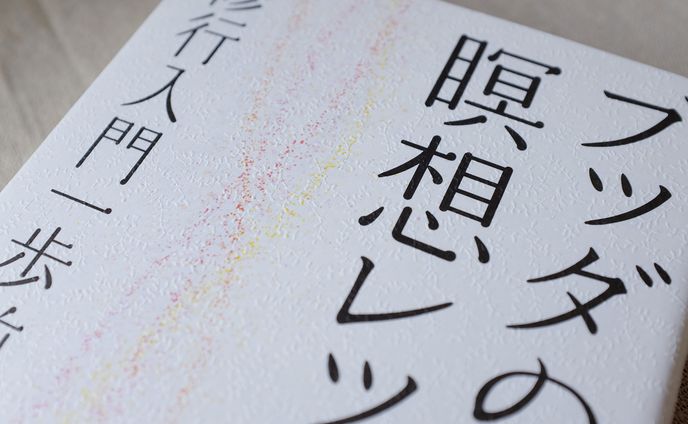 ブッダの
瞑想レッ
修行入門一歩